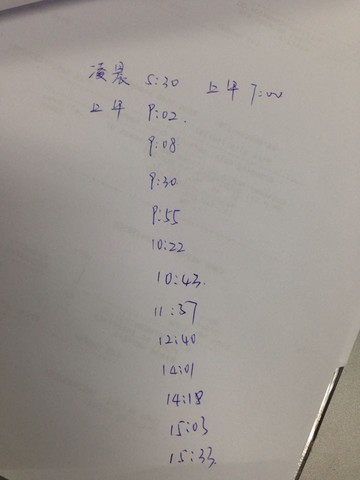 凌晨 5:30 上午 7:00
上午 9:02.
9:08
9:30
9:55
10:22
10:43.
11:37
12:40
14:01
14:18
15:03
15:33.